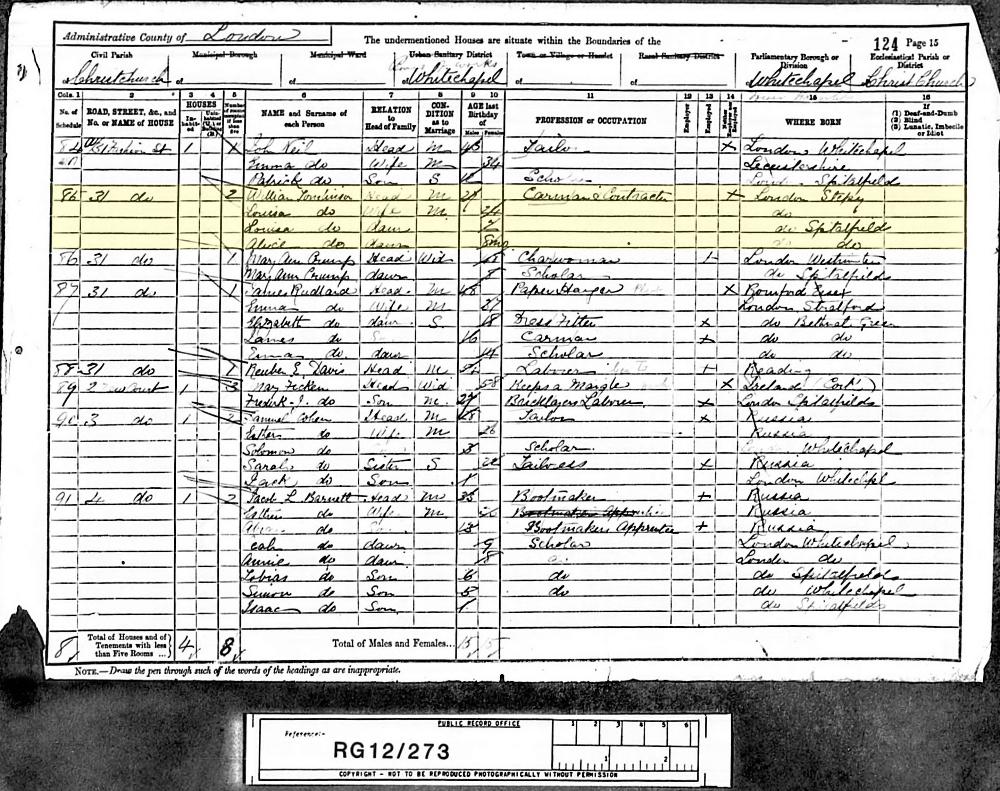 Administrative County of London
The undermentioned Houses are situate within the Boundaries of the
124 Page 15
Civil Parish
Municipal Borough
Municipal Ward
Urban Sanitary District
Town or Village or Hamlet
Rural Sanitary District
Parliamentary Borough or Division
Ecclesiastical Parish or District
Christchurch of of Whitechapel of of Whitechapel Christ Church
Cols. 1 2 3 4 5 6 7 8 9 10 11 12 13 14 15 16
No. of Schedule
ROAD, STREET, &c., and No. or NAME of HOUSE
HOUSES
Inhabited
NAME and Surname of each Person
RELATION to Head of Family
CONDITION as to Marriage
AGE last Birthday of
Males Females
PROFESSION or OCCUPATION
Employer
Employed
Neither
WHERE BORN
If (1) Deaf-and-Dumb (2) Blind (3) Lunatic, Imbecile or Idiot
84 St 1 John Neil Head M Tailor X London Whitechapel
Emma do Wife M 34 Leicestershire
Patrick do Son S Scholar Spitalfield
85 31 do 2 William Tomlinson Head M Carman & Contractor X London Stepy
Louisa do Wife M do
Louisa do daur do Spitalfield
Alice do daur 8mo do do
86 31 do 1 Mary Ann Crump Head Wid Charwoman + London Westminster
Mary Ann Crump daur 8 Scholar do Spitalfields
87 31 do 1 James Rudland Head M 48 Paper Hanger X Romford Essex
Emma do Wife M London Stratford
Elizabeth do daur S 18 Dress Fitter x do Bethnal Green
James do 16 Carman x do do
Emma do daur 14 Scholar do do
88 31 do 1 Reuben E. Davis Head M Laborer + Reading
89 2 Court 1 3 Mary Ficken Head Wid 58 Keeps a Mangle X Ireland (Cork)
Frederk J. do Son M 27 Bricklayers Labourer x London Spitalfields
90 3 do 1 2 Samuel Cohen Head M 28 Tailor x Russia
Esther do Wife M 26 Russia
Solomon do 3 Scholar Whitechapel
Sarah do Sister S 22 Tailoress x Russia
Jack do Son 1 London Whitechapl
91 4 do 1 2 Jacob L Barnett Head M 35 Bootmaker + Russia
Esther do Wife M Bootmaker Apprentice Russia
do 13 Bootmakers Apprentice + Russia
do daur 9 Scholar London Whitechapel
Annie do daur 8 London do
Tobias do Son 6 do do Spitalfields
Simon do Son 5 do do Whitechapel
Isaac do Son 1 do Spitalfields
8 Total of Houses and of Tenements with less than Five Rooms ... 4 8 Total of Males and Females... 15 15
NOTE.—Draw the pen through such of the words of the headings as are inappropriate.
PUBLIC RECORD OFFICE
1 2 3 4 5 6
Reference:-
RG12/273
1 2
COPYRIGHT - NOT TO BE REPRODUCED PHOTOGRAPHICALLY WITHOUT PERMISSION